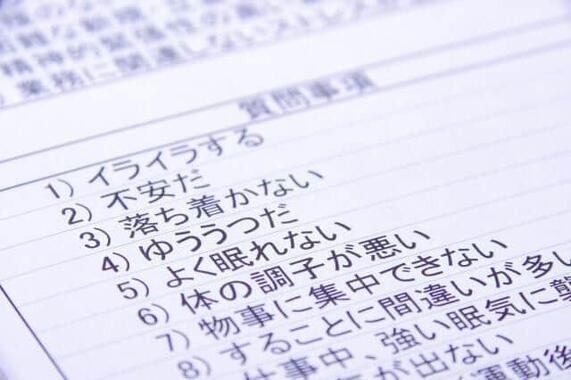 精神的緊張性の高い
業務に関連しないストレス
質問事項
1) イライラする
2) 不安だ
3) 落ち着かない
4) ゆううつだ
5) よく眠れない
6) 体の調子が悪い
7) 物事に集中できない
8) することに間違いが多い
仕事中、強い眠気に襲
が出ない
運動後